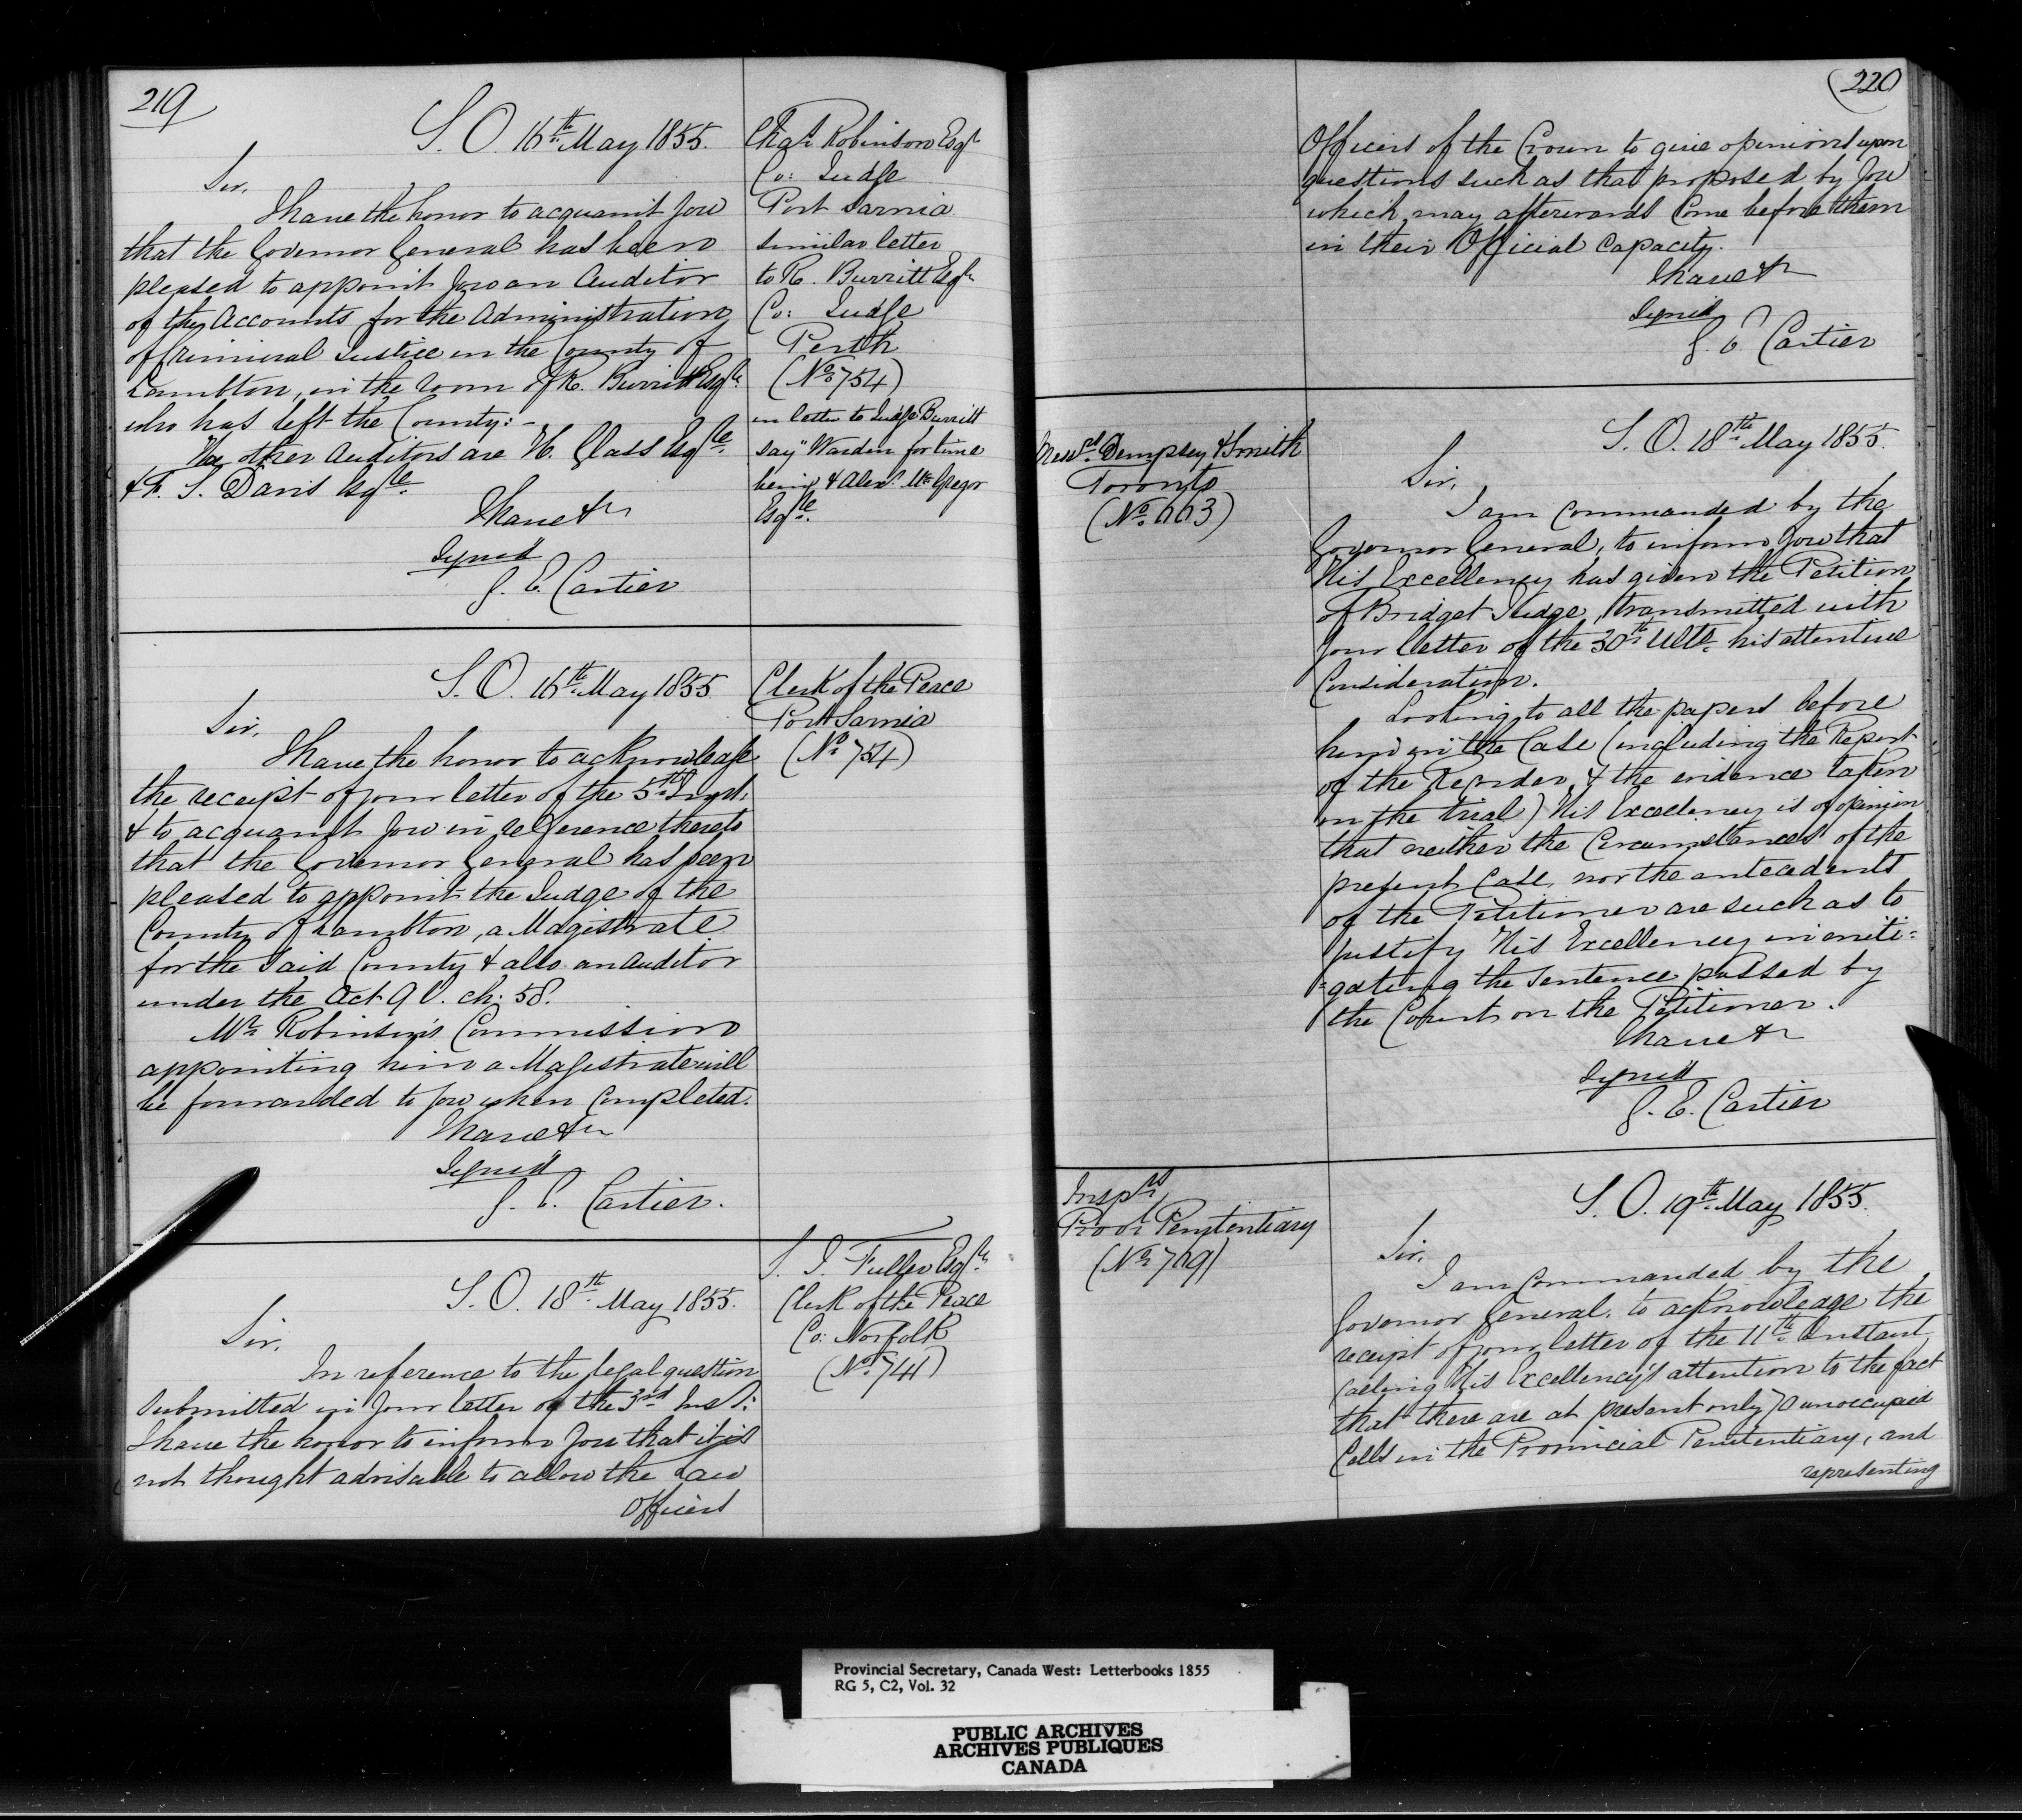 219
S. O. 16th May 1855.
Sir,
I have the honor to acquaint you
that the Governor General has been
pleased to appoint you an Auditor
of the Accounts for the Administration
of Criminal Justice in the County of
Lambton, in the room of R. Burritt Esqre
who has left the County:-
The other Auditors are H. Glass Esqre
& F. S. Davis Esqre
I have &c
Signed
G. E. Cartier
Chas Robinson Esqr
Co: Judge
Port Sarnia
similar letter
to R. Burritt Esqr
Co: Judge
Perth
(No 754)
in letter to Judge Burritt
say "Warden for time
being & Alexr McGregor
Esqre.
S. O. 16th May 1855.
Sir,
I have the honor to acknowledge
the receipt of your letter of the 5th Inst.
& to acquaint you in reference thereto
that the Governor General has been
pleased to appoint the Judge of the
County of Lambton, a Magistrate
for the said County & also an Auditor
under the Act 9 V. ch: 58.
Mr Robinson's Commission
appointing him a Magistrate will
be forwarded to you when completed.
I have &c
Signed
G. E. Cartier.
Clerk of the Peace
Port Sarnia
(No 754)
S. O. 18th May 1855.
Sir,
In reference to the legal question
submitted in your letter of the 3rd Inst:
I have the honor to inform you that it is
not thought advisable to allow the Law
Officers
Fuller Esqre
Clerk of the Peace
Co: Norfolk
(No 741)
220
Officers of the Crown to give opinions upon
questions such as that proposed by you
which may afterwards come before them
in their Official Capacity.
I have &c
Signed
G. E. Cartier
Messrs Dempsey & Smith
Toronto
(No 663)
S. O. 18th May 1855.
Sir,
I am Commanded by the
Governor General, to inform you that
His Excellency has given the Petition
of Bridget Judge, transmitted with
your letter of the 30th Ulto. his attentive
Consideration.
Looking to all the papers before
him in the Case (including the Report
of the Recorder, & the evidence taken
on the trial) His Excellency is of opinion
that neither the Circumstances of the
present Case, nor the antecedents
of the Petitioner are such as to
justify His Excellency in miti=
=gating the sentence passed by
the Court on the Petitioner.
I have &c
Signed
G. E. Cartier
Insprs
Provl Penitentiary
(No 769)
S. O. 19th May 1855.
Sir,
I am Commanded by the
Governor General, to acknowledge the
receipt of your letter of the 11th Instant,
calling His Excellency's attention to the fact
that there are at present only 70 unoccupied
Cells in the Provincial Penitentiary, and
representing
Provincial Secretary, Canada West: Letterbooks 1855
RG 5, C2, Vol. 32
PUBLIC ARCHIVES
ARCHIVES PUBLIQUES
CANADA